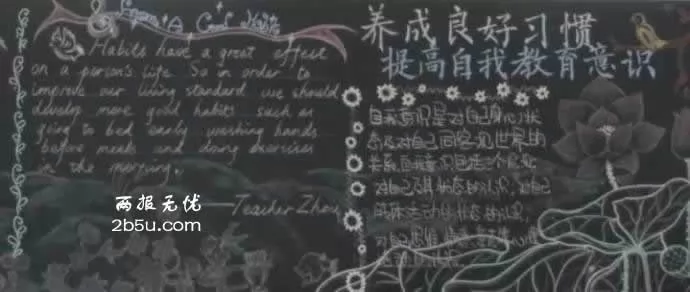 Form A Good Habits
Habits have a great effect
on a person's life. So in order to
improve our living standard we should
develop more good habits such as
going to bed early washing hands
before meals and doing exercises
in the morning.
—Teacher Zhou
两报无优
2b5u.com
养成良好习惯
提高自我教育意识
自我意识是对自己身心状
态及对自己同客观世界的
关系
对自己 状态的认识,对自己
肢体活动状态的认识,
对自己思维、情感、